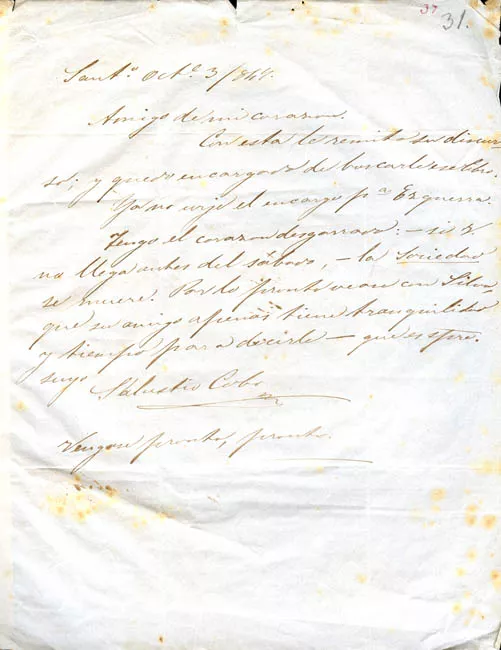 37 31.
Sant.º Oct.e 3/
Amigo de mi corazon.
Con esta le remito su discur-
so; y quedo encargado de buscarle ese libro.
Ya no urje el encargo p.a Ezquerra.
Tengo el corazon desgarrado: – si
no llega antes del sábado, – la Sociedad
se muere. Por lo pronto vea con Silva
que su amigo apenas tiene tranquilidad
y tiempo para decirle – que es
suyo
Salustio Cobo
Vengase pronto, pronto.